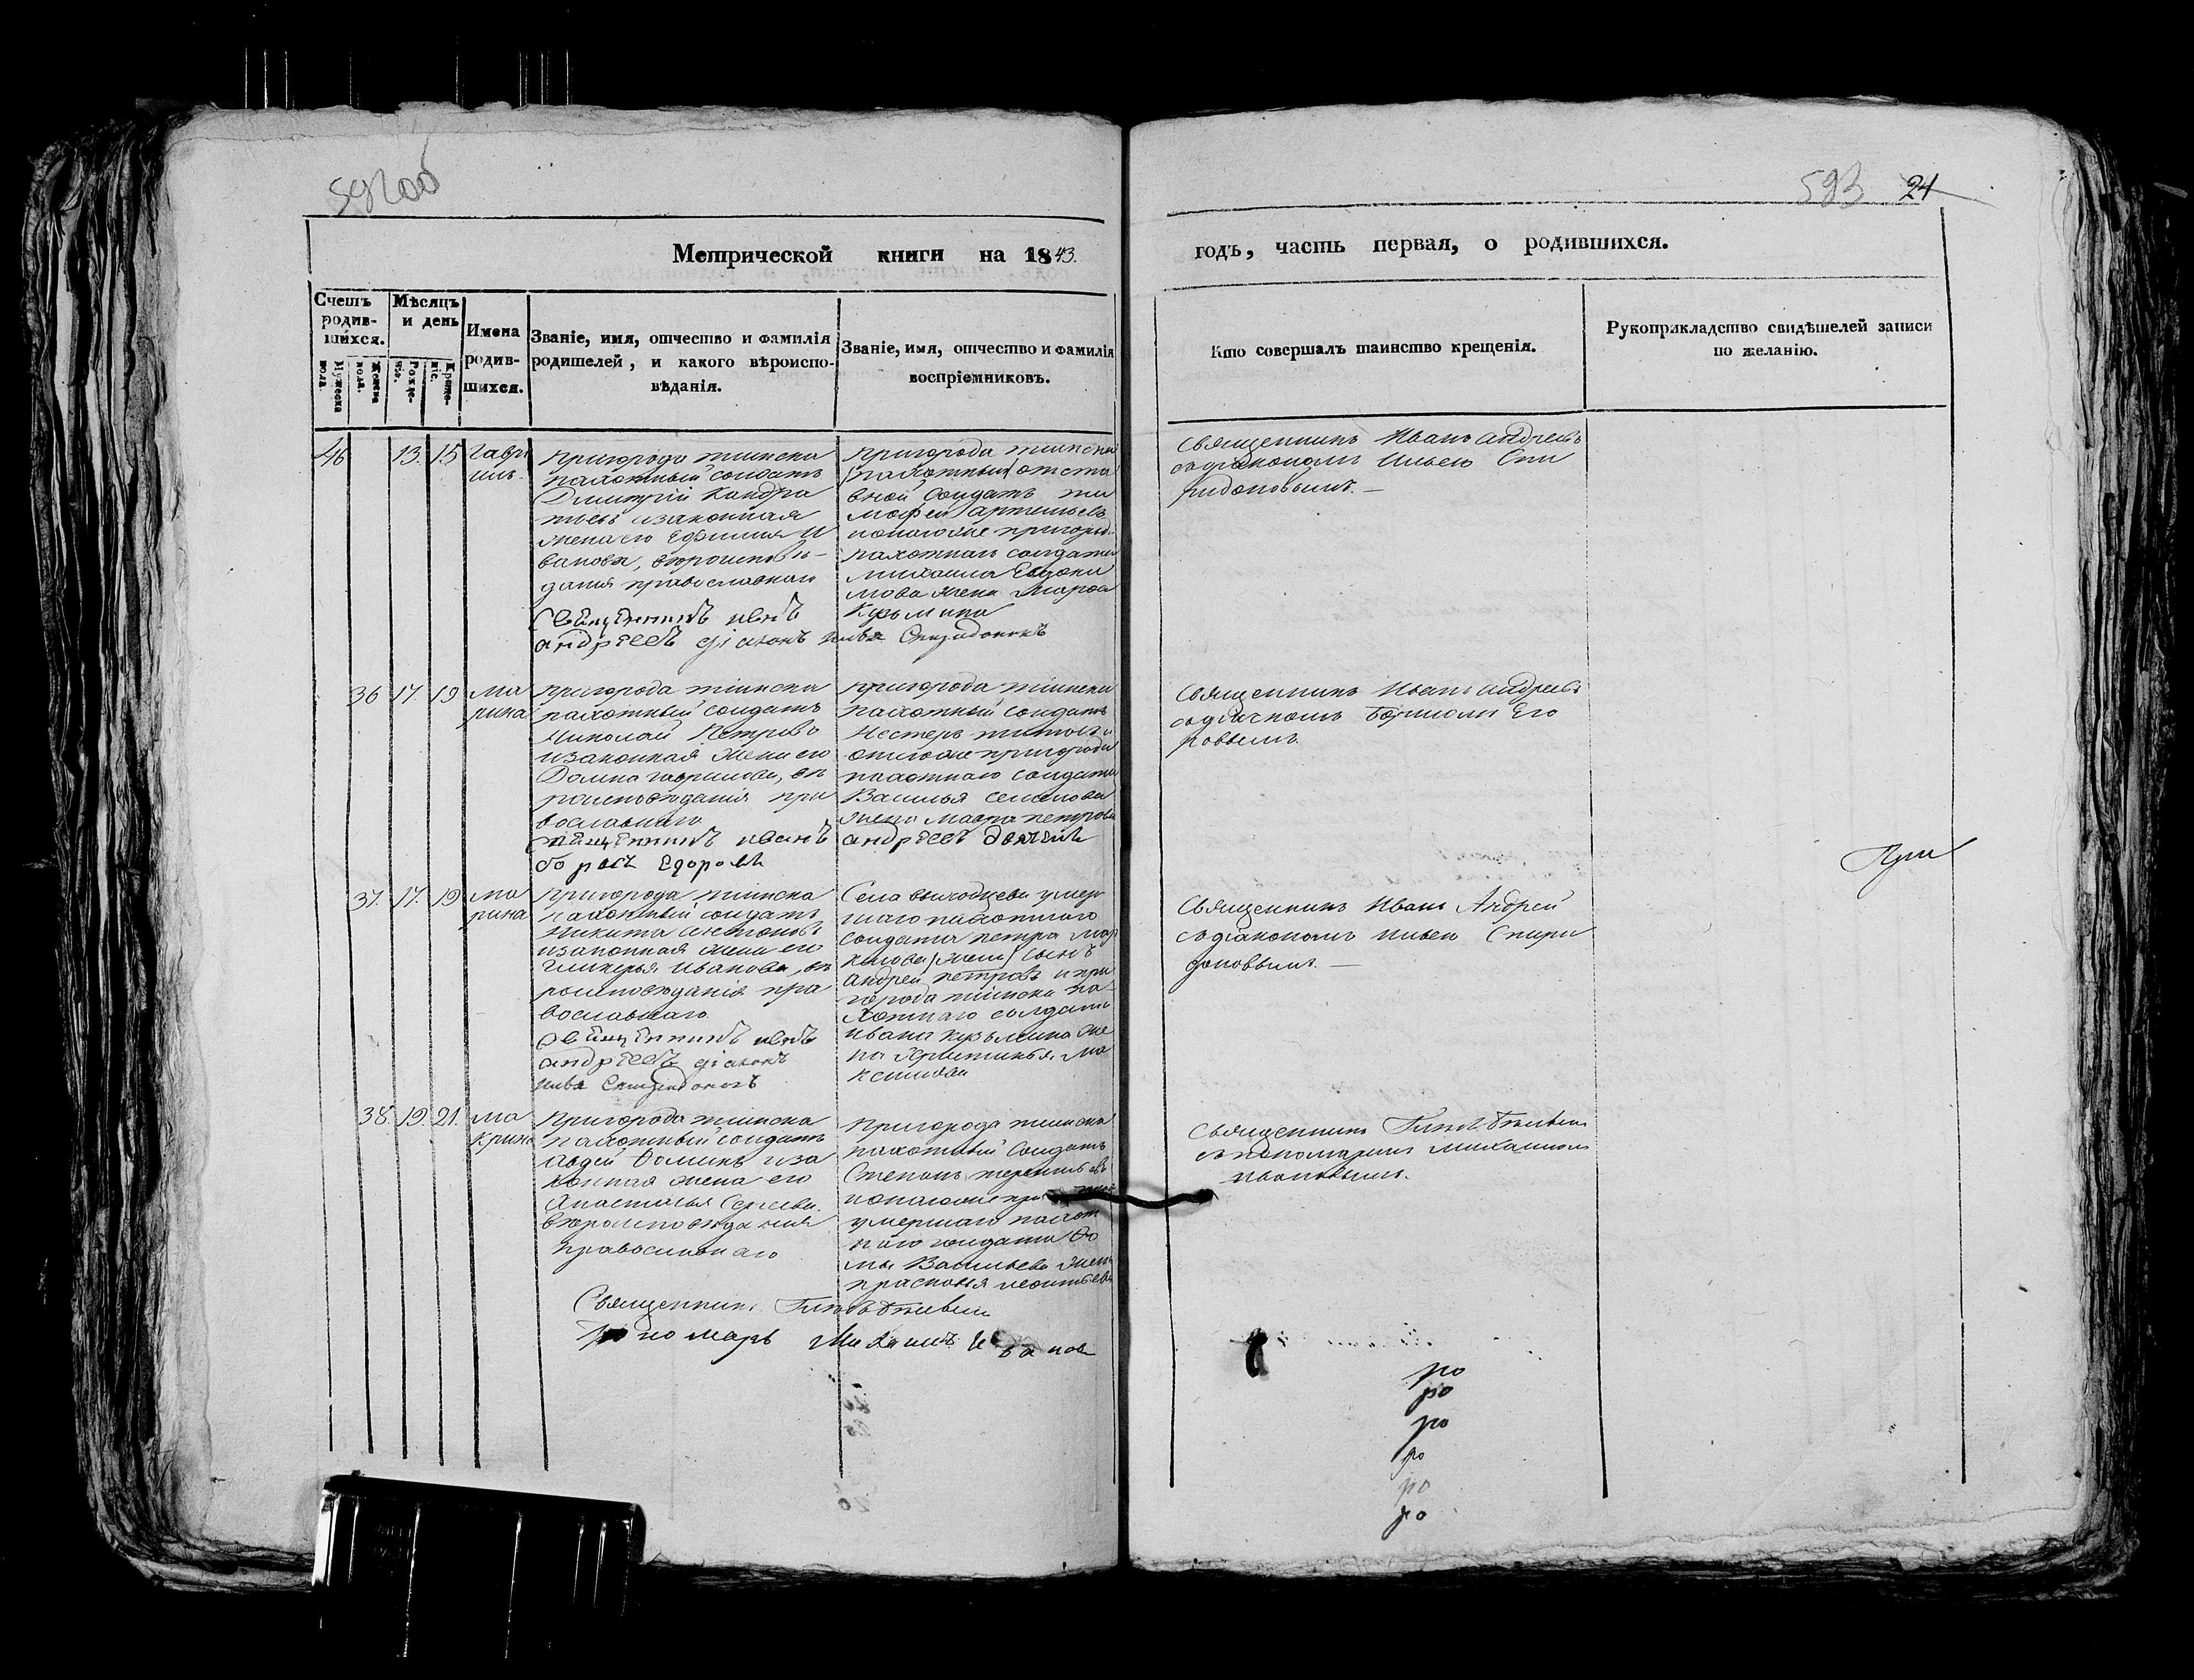 592об
593 24
Метрической книги на 1843.
годъ, часть первая, о родившихся.
Счетъ родив-шихся.
Мужеска пола.
Женска пола.
Мѣсяцъ и день
Рожде-нія.
Креще-нія.
Имена родив-шихся.
Званіе, имя, отчество и фамилія
родителей, и какого вѣроиспо-
вѣданія.
Званіе, имя, отчество и фамилія
воспріемниковъ.
Кто совершалъ таинство крещенія.
Рукоприкладство свидѣтелей записи
по желанію.
46 13. 15 Гаврі
илъ.
Пригорода тіинска
пахотный солдатъ
Дмитрій Кондра
тьевъ изаконная
жена его Ефимия И
ванова, вероисповѣ-
дания православнаго
Священникъ иванъ
андреевъ діаконъ илья Спиридоновъ
Пригорода тіинска
пахотный отста
вной солдатъ ти
мофей артемьевъ
Михаила Евдоки
мова жена Марфа
Кузьмина
Священникъ Иванъ андреевъ
содіакономъ Ильею Спи
ридоновымъ. —
36 17 19 Ма
рина
пригорода тіинска
пахотный солдатъ
Николай Петровъ
изаконная жена его
Домна гаврилова, ве
роисповѣдания пра
вославнаго
Священникъ иванъ андреевъ дьячекъ
борисъ Егоровъ
пригорода тіинска
пахотный солдатъ
Нестеръ
пахотнаго солдата
Василья семенова
жена мавра петрова
Священникъ Иванъ андреевъ
содьячкомъ Борисомъ Его
ровымъ.
37. 17. 19 Ма
рина
Пригорода тіинска
пахотный солдатъ
Никита
изаконная жена его
гликерья Иванова, ве
роисповѣдания пра
вославнаго
Священникъ иванъ
андреевъ діаконъ
илья Спиридоновъ
Села умер
шаго пахотнаго
солдата петра
сынъ
андрей петровъ и при
города тіинска па
хотнаго солдата
ивана кузьмина же
на
Священникъ Иванъ Андрей
содіакономъ ильею Спири
доновымъ. —
38. 19. 21. Ма
крина
Пригорода тіинска
пахотный солдатъ
Авдей Фоминъ иза
конная жена его
Анастасья Сергеева.
вероисповѣдания
православнаго
Пригорода тіинска
пахотный Солдатъ
Степанъ
умершаго пахот
наго солдата Фо
мы Васильева жена
прасковья леонтьева
Священникъ
Пономарь Михаилъ Ивановъ
Священникъ
съ пономаремъ михаиломъ
ивановымъ.
ро
ро
ро
ро
ро
ро